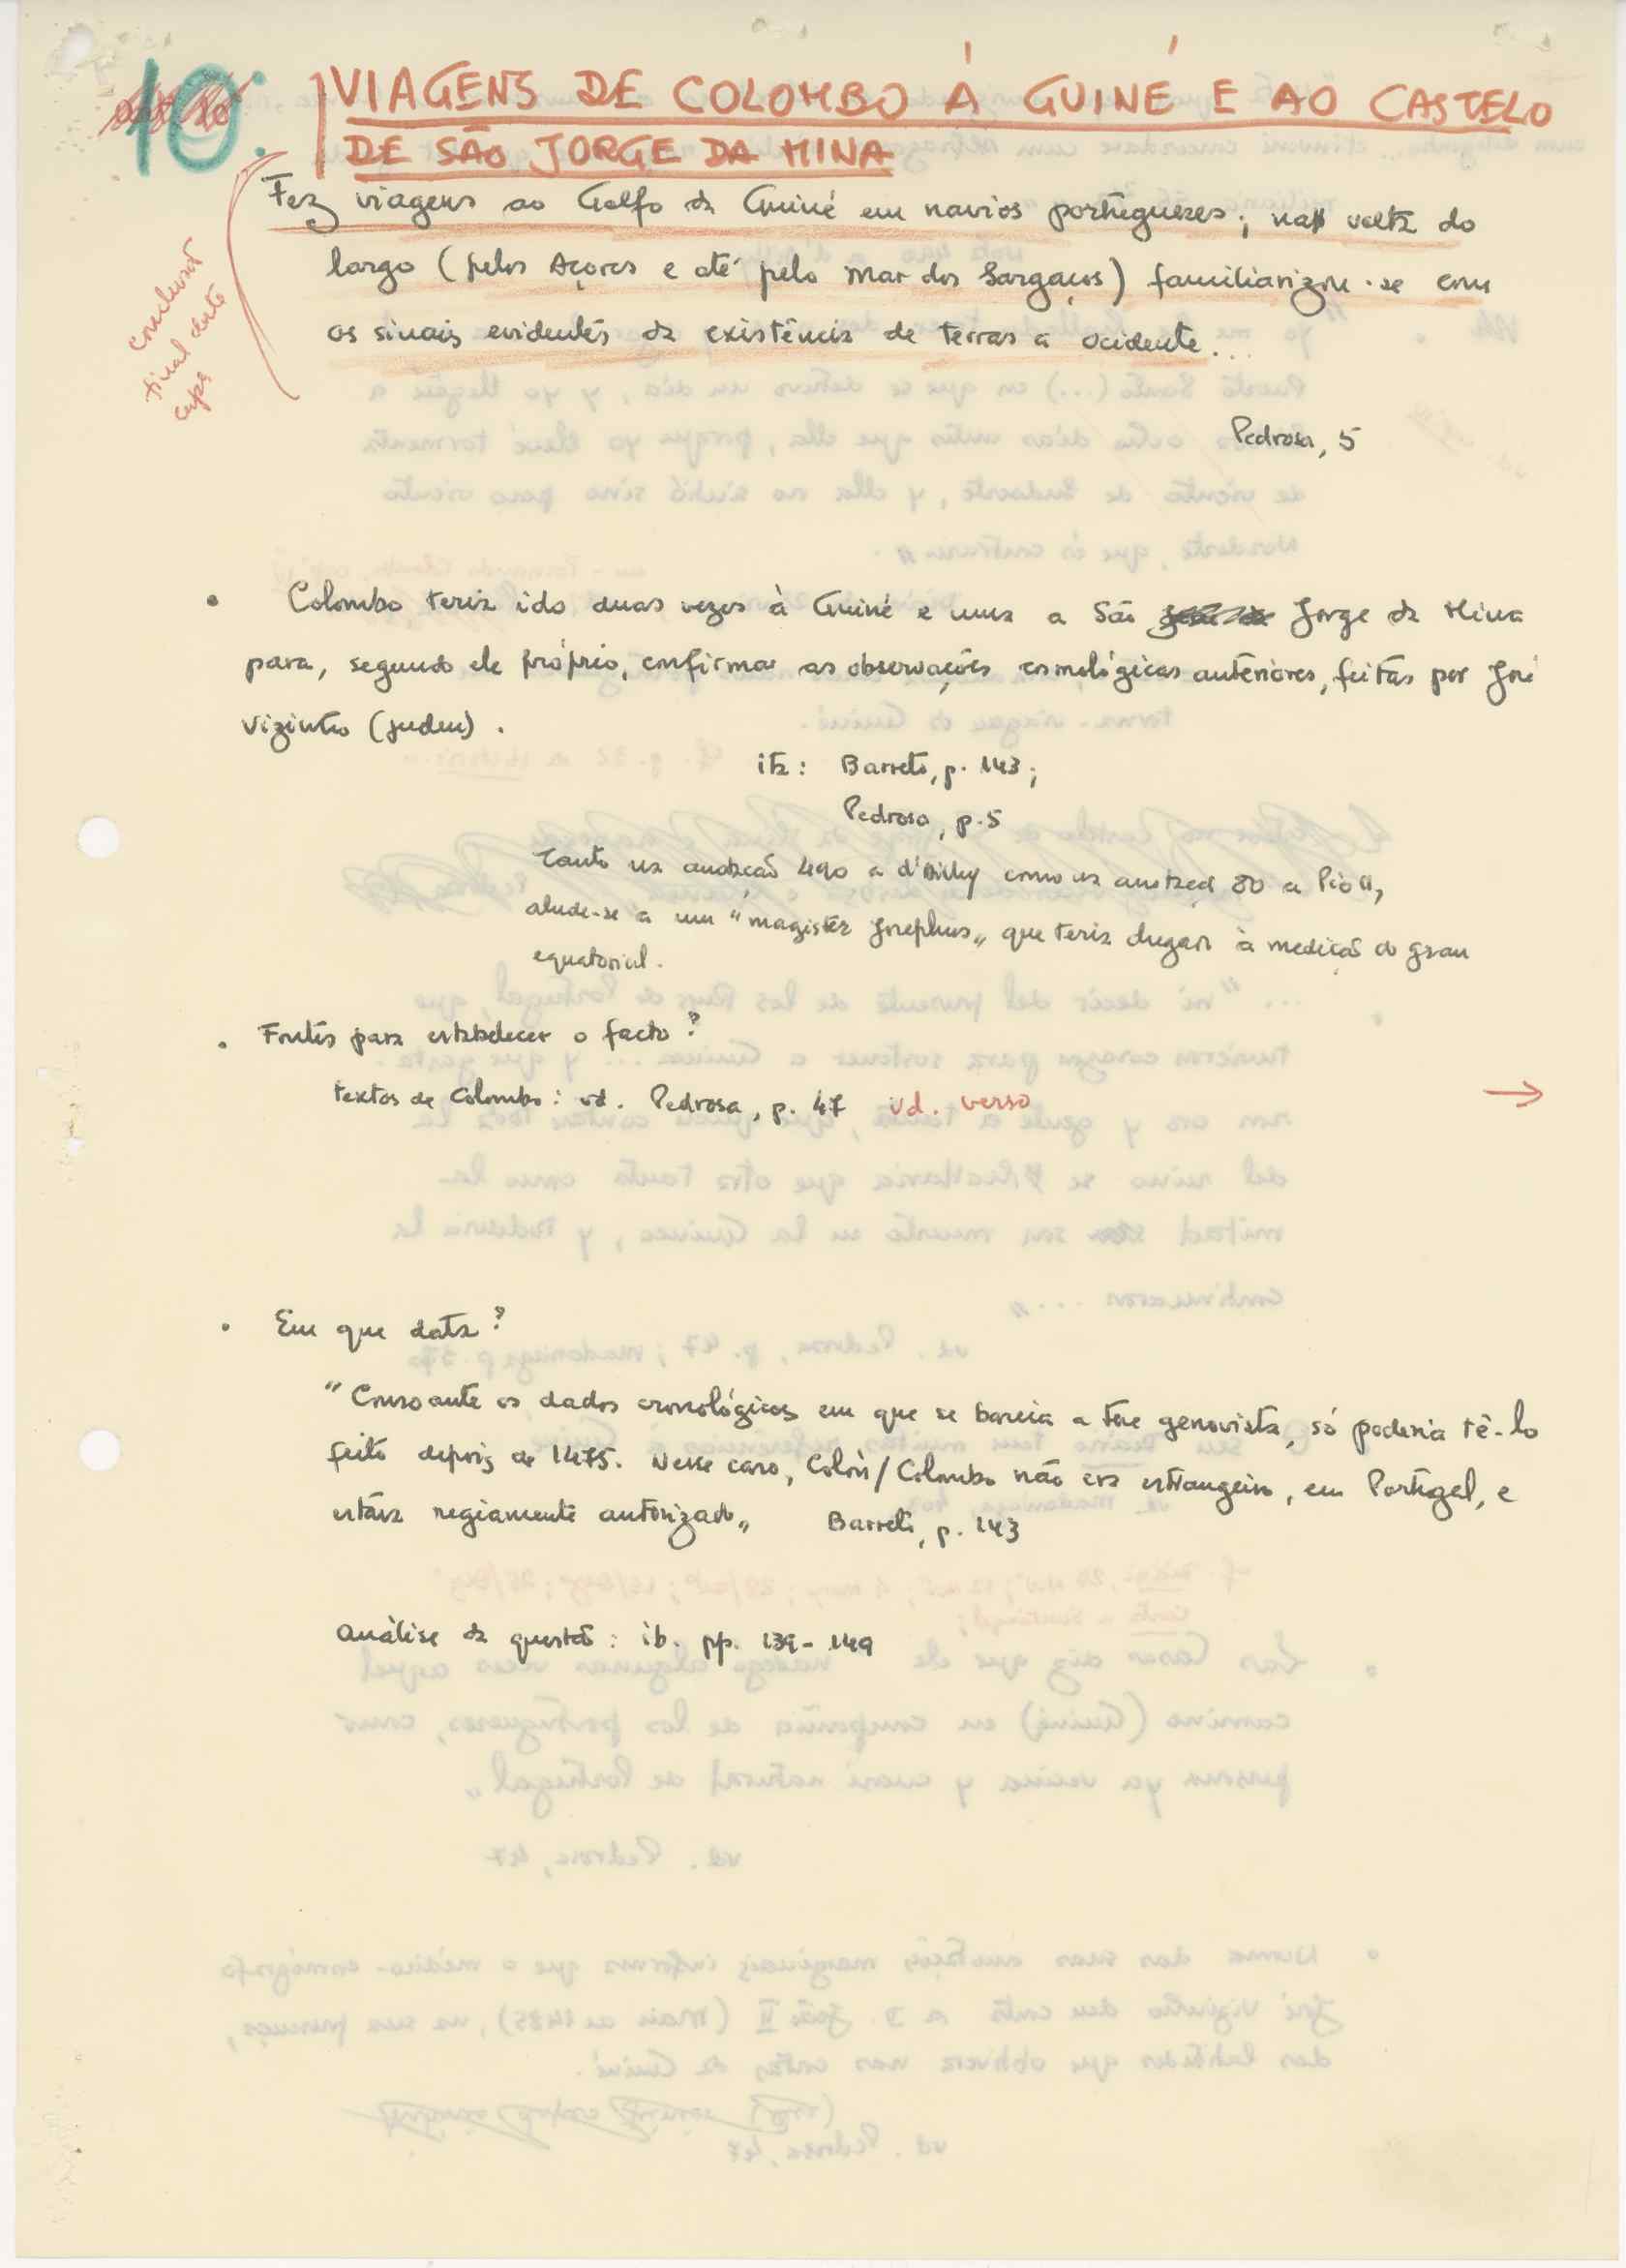 10.
VIAGENS DE COLOMBO À GUINÉ E AO CASTELO
DE SÃO JORGE DA MINA
Fez viagens ao Golfo da Guiné em navios portugueses; na volta do
largo (pelos Açores e até pelo Mar dos Sargaços) familiarizou-se com
os sinais evidentes da existência de terras a ocidente...
conclusão
final deste
cap.
Pedrosa, 5
• Colombo teria ido duas vezes à Guiné e uma a São Jorge da Mina
para, segundo ele próprio, confirmar as observações cosmológicas anteriores, feitas por José
Vizinho (judeu).
ita: Barreto, p. 143;
Pedrosa, p. 5
Tanto na anotação 490 a d'Ailly como na anotação 80 a Pio II,
alude-se a um "magister Josephus" que teria chegado à medição do grau
equatorial.
• Fontes para estabelecer o facto?
textos de Colombo: vd. Pedrosa, p. 47 vd. verso →
• Em que data?
"Consoante os dados cronológicos em que se baseia a tese genovista, só poderia tê-lo
feito depois de 1475. Nesse caso, Colón/Colombo não era estrangeiro, em Portugal, e
estava regiamente autorizado" Barreto, p. 143
Análise da questão: ib. pp. 139-149